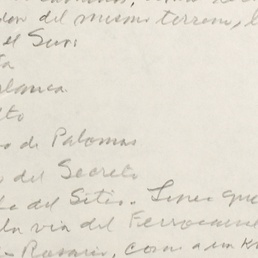 del mismo terreno, l
el Sur:
ta
blanca
lto
o de Palomas
del Secreto
de del Sitio. Linea que
la via del Ferrocarril
Rosario, cosa a un K